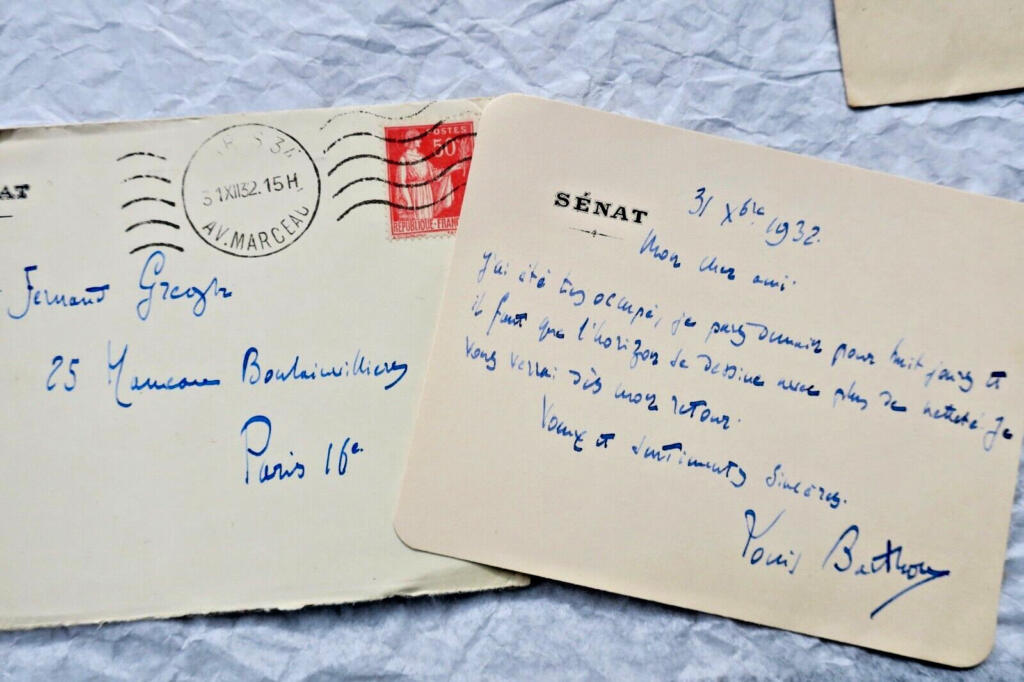 AT
RIS 34
31XII32.15H
AV. MARCEAU
POSTES
50
REPUBLIQUE FRAN
Fernand Gregh
25 Hameau Boulainvilliers
Paris 16e
SÉNAT
31 Xbre 1932.
Mon cher ami.
J'ai été très occupé, je pars demain pour huit jours et
il faut que l'horizon se dessine avec plus de netteté. Je
vous verrai dès mon retour.
Voeux et sentiments sincères.
Louis Barthou